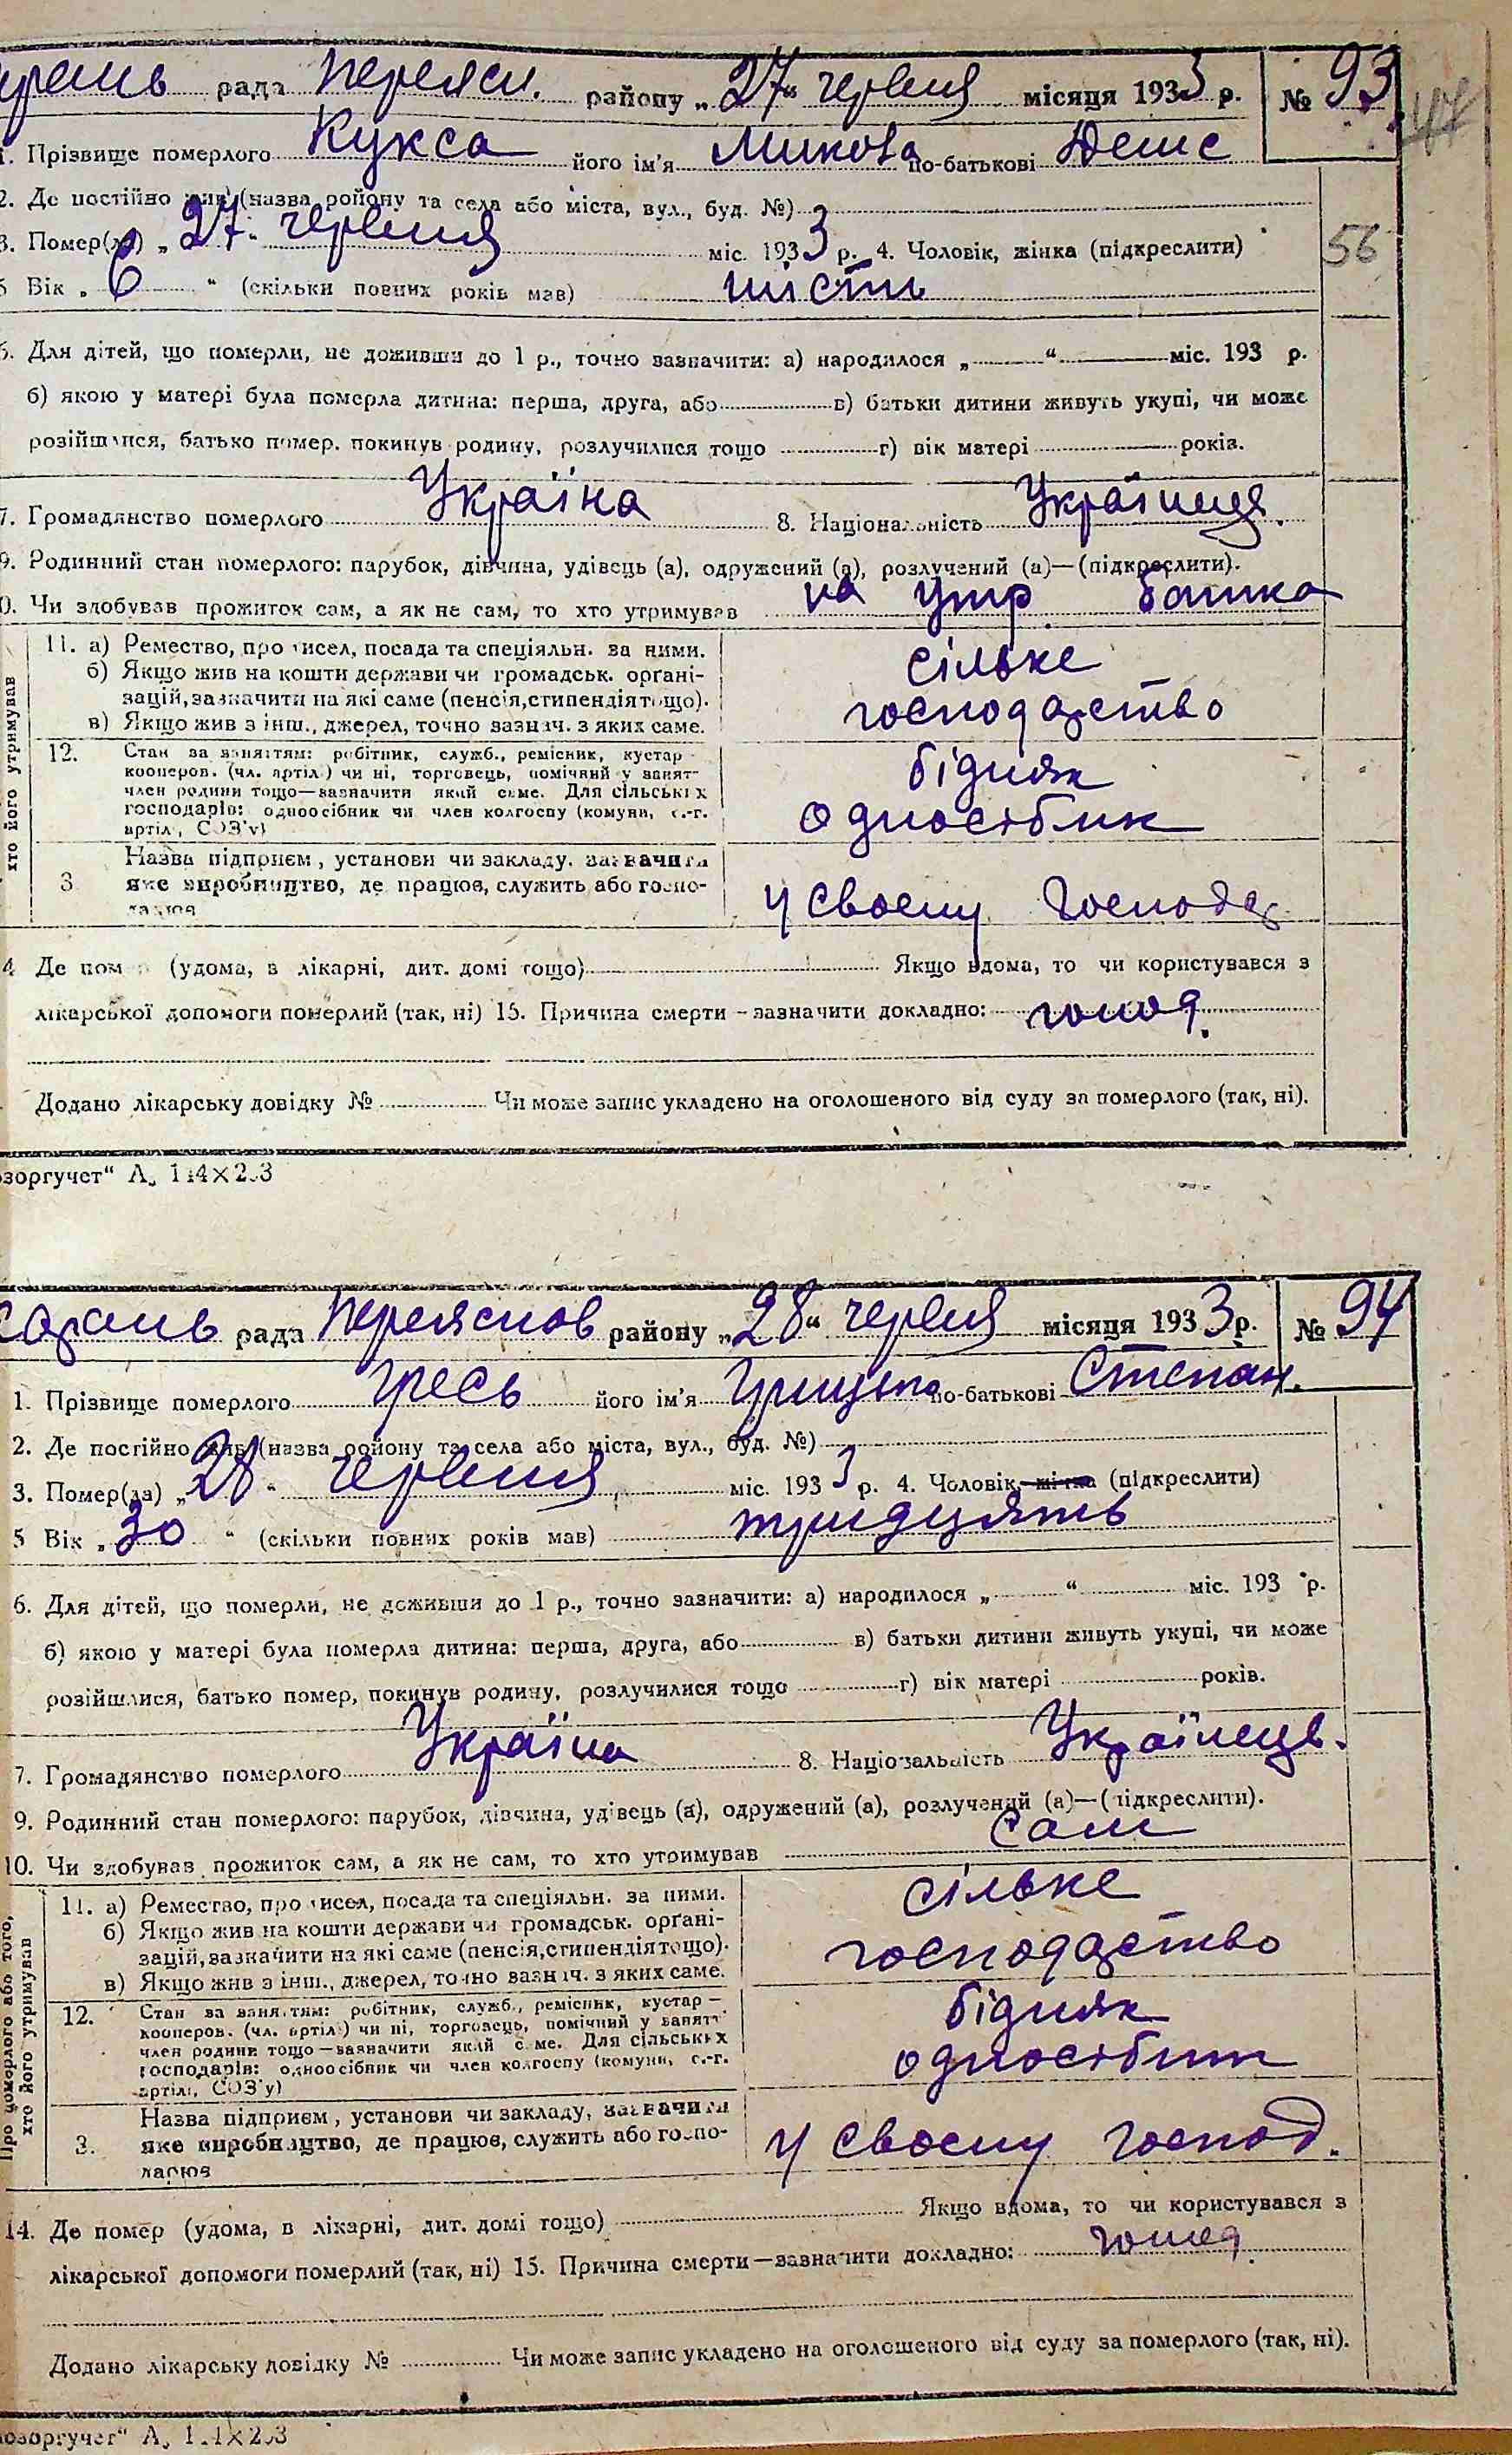 рада Переясл. району „27“ червня місяця 1933 р. № 93
47
1. Прізвище померлого Кукса його ім'я Микола по-батькові Денис
2. Де постійно жив (назва району та села або міста, вул., буд. №)
3. Помер(ла) „27“ червня міс. 1933 р. 4. Чоловік, жінка (підкреслити)
56
5 Вік „6“ (скільки повних років мав) шість
6. Для дітей, що померли, не доживши до 1 р., точно зазначити: а) народилося „ “ міс. 193 р.
б) якою у матері була померла дитина: перша, друга, або в) батьки дитини живуть укупі, чи може
розійшлися, батько помер, покинув родину, розлучилися тощо г) вік матері років.
7. Громадянство померлого Україна 8. Національність Українця.
9. Родинний стан померлого: парубок, дівчина, удівець (а), одружений (а), розлучений (а)—(підкреслити).
0. Чи здобував прожиток сам, а як не сам, то хто утримував на утр. батька
хто його утримував
11. а) Ремество, промисел, посада та спеціяльн. за ними.
б) Якщо жив на кошти держави чи громадськ. орґані-
зацій, зазначити на які саме (пенсія, стипендія тощо).
в) Якщо жив з інш., джерел, точно зазнач. з яких саме.
сільке
господарство
12. Стан за заняттям: робітник, служб., ремісник, кустар
кооперов. (чл. артілі) чи ні, торговець, помічний у занят-
член родини тощо—зазначити який саме. Для сільських
господарів: одноосібник чи член колгоспу (комуни, с.-г.
артілі, СОЗ'у)
бідняк
одноосібник
3 Назва підприєм, установи чи закладу, зазначити
яке виробництво, де працює, служить або госпо-
дарює
у своєму господар
4 Де помер (удома, в лікарні, дит. домі тощо) Якщо вдома, то чи користувався з
лікарської допомоги померлий (так, ні) 15. Причина смерти – зазначити докладно: голод.
Додано лікарську довідку № Чи може запис укладено на оголошеного від суду за померлого (так, ні).
озоргучет“ А. 114×203
рада Переяслов району „28“ червня місяця 1933 р. № 94
1. Прізвище померлого Гресь його ім'я Грицько по-батькові Степан.
2. Де постійно жив (назва району та села або міста, вул., буд. №)
3. Помер(ла) „28“ червня міс. 1933 р. 4. Чоловік, жінка (підкреслити)
5 Вік „30“ (скільки повних років мав) тридцять
6. Для дітей, що померли, не доживши до 1 р., точно зазначити: а) народилося „ “ міс. 193 р.
б) якою у матері була померла дитина: перша, друга, або в) батьки дитини живуть укупі, чи може
розійшлися, батько помер, покинув родину, розлучилися тощо г) вік матері років.
7. Громадянство померлого Україна 8. Національність Українець.
9. Родинний стан померлого: парубок, дівчина, удівець (а), одружений (а), розлучений (а)—(підкреслити).
10. Чи здобував прожиток сам, а як не сам, то хто утримував сам
Про померлого або того,
хто його утримував
11. а) Ремество, промисел, посада та спеціяльн. за ними.
б) Якщо жив на кошти держави чи громадськ. орґані-
зацій, зазначити на які саме (пенсія, стипендія тощо).
в) Якщо жив з інш., джерел, точно зазнач. з яких саме.
сільке
господарство
12. Стан за заняттям: робітник, служб., ремісник, кустар –
кооперов. (чл. артілі) чи ні, торговець, помічний у занятт
член родини тощо—зазначити який саме. Для сільських
господарів: одноосібник чи член колгоспу (комуни, с.-г.
артілі, СОЗ'у)
бідняк
одноосібник
3. Назва підприєм, установи чи закладу, зазначити
яке виробництво, де працює, служить або госпо-
дарює
у своєму господ.
14. Де помер (удома, в лікарні, дит. домі тощо) Якщо вдома, то чи користувався з
лікарської допомоги померлий (так, ні) 15. Причина смерти—зазначити докладно: голод.
Додано лікарську довідку № Чи може запис укладено на оголошеного від суду за померлого (так, ні).
озоргучет“ А. 114×203